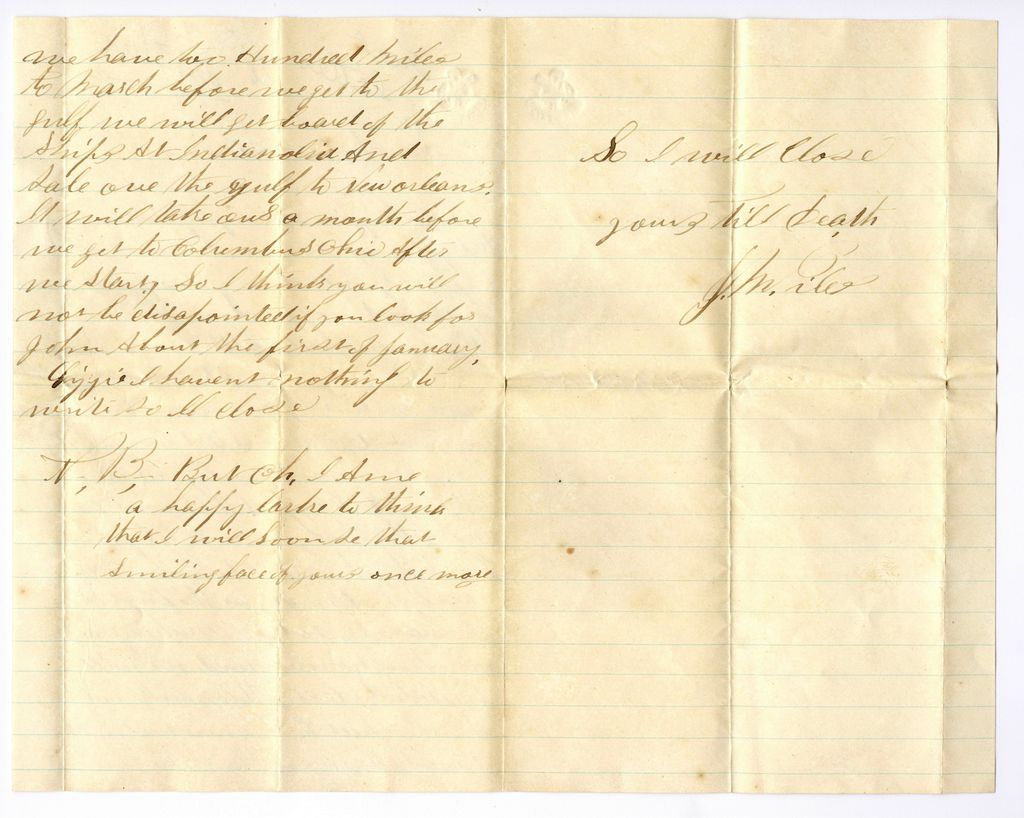 we have two Hundred miles
to March before we get to the
gulf we will get board of the
Ships At Indianolia And
sale ove the gulf to New orleans.
It will take ous a month before
we get to Colrembus Ohio After
we start, So I think you will
not be disapointed if you look for
John About the first of January,
I havent nothing to
write so Ill close
N, B, But Oh, I Ame
a happy to think
that I will soon se that
smiling face of yours once more
So I will Close
yours Till death
J. M.